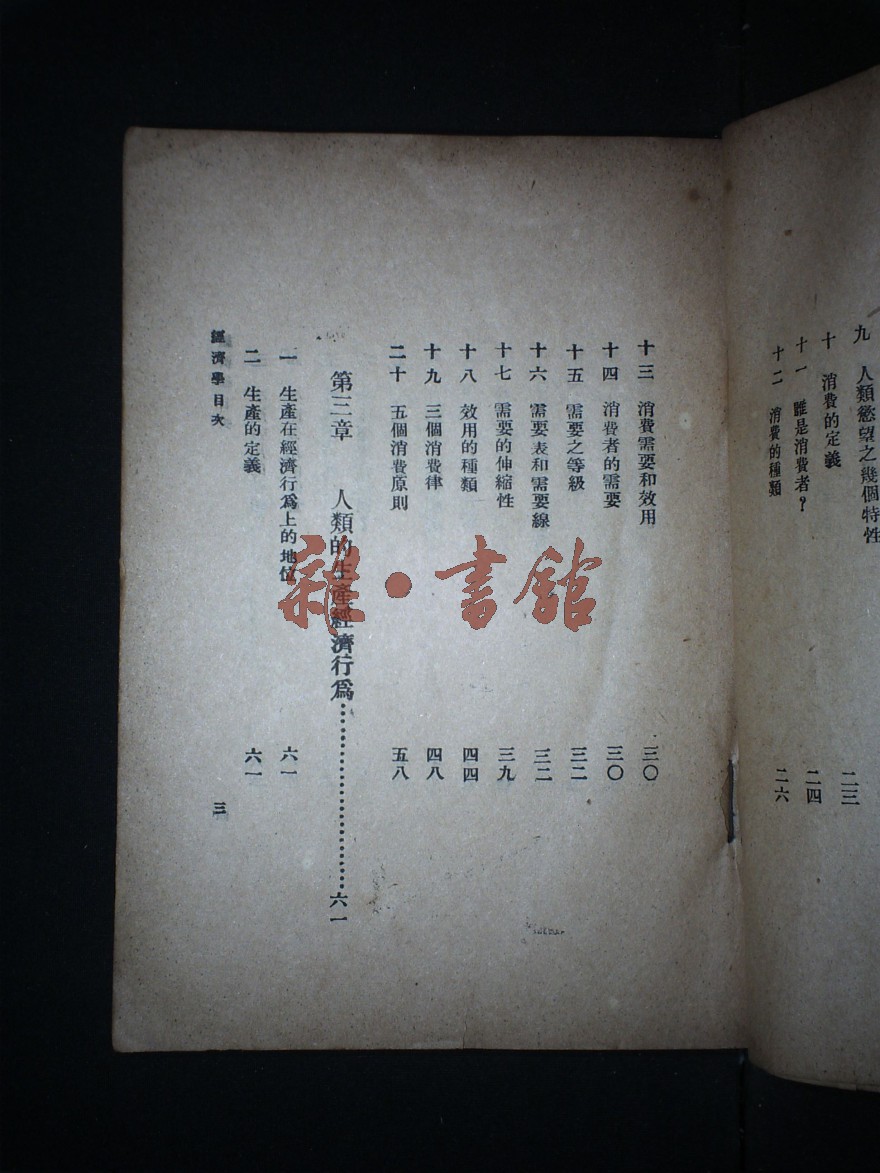 九 人類慾望之幾個特性 二三
十 消費的定義 二四
十一 誰是消費者？
十二 消費的種類 二六
十三 消費需要和效用 三〇
十四 消費者的需要 三〇
十五 需要之等級 三二
十六 需要表和需要線 三二
十七 需要的伸縮性 三九
十八 效用的種類 四四
十九 三個消費律 四八
二十 五個消費原則 五八
第三章 人類的生產經濟行爲…………………六一
一 生產在經濟行爲上的地位 六一
二 生產的定義 六一
經濟學目次 三
雜·書館